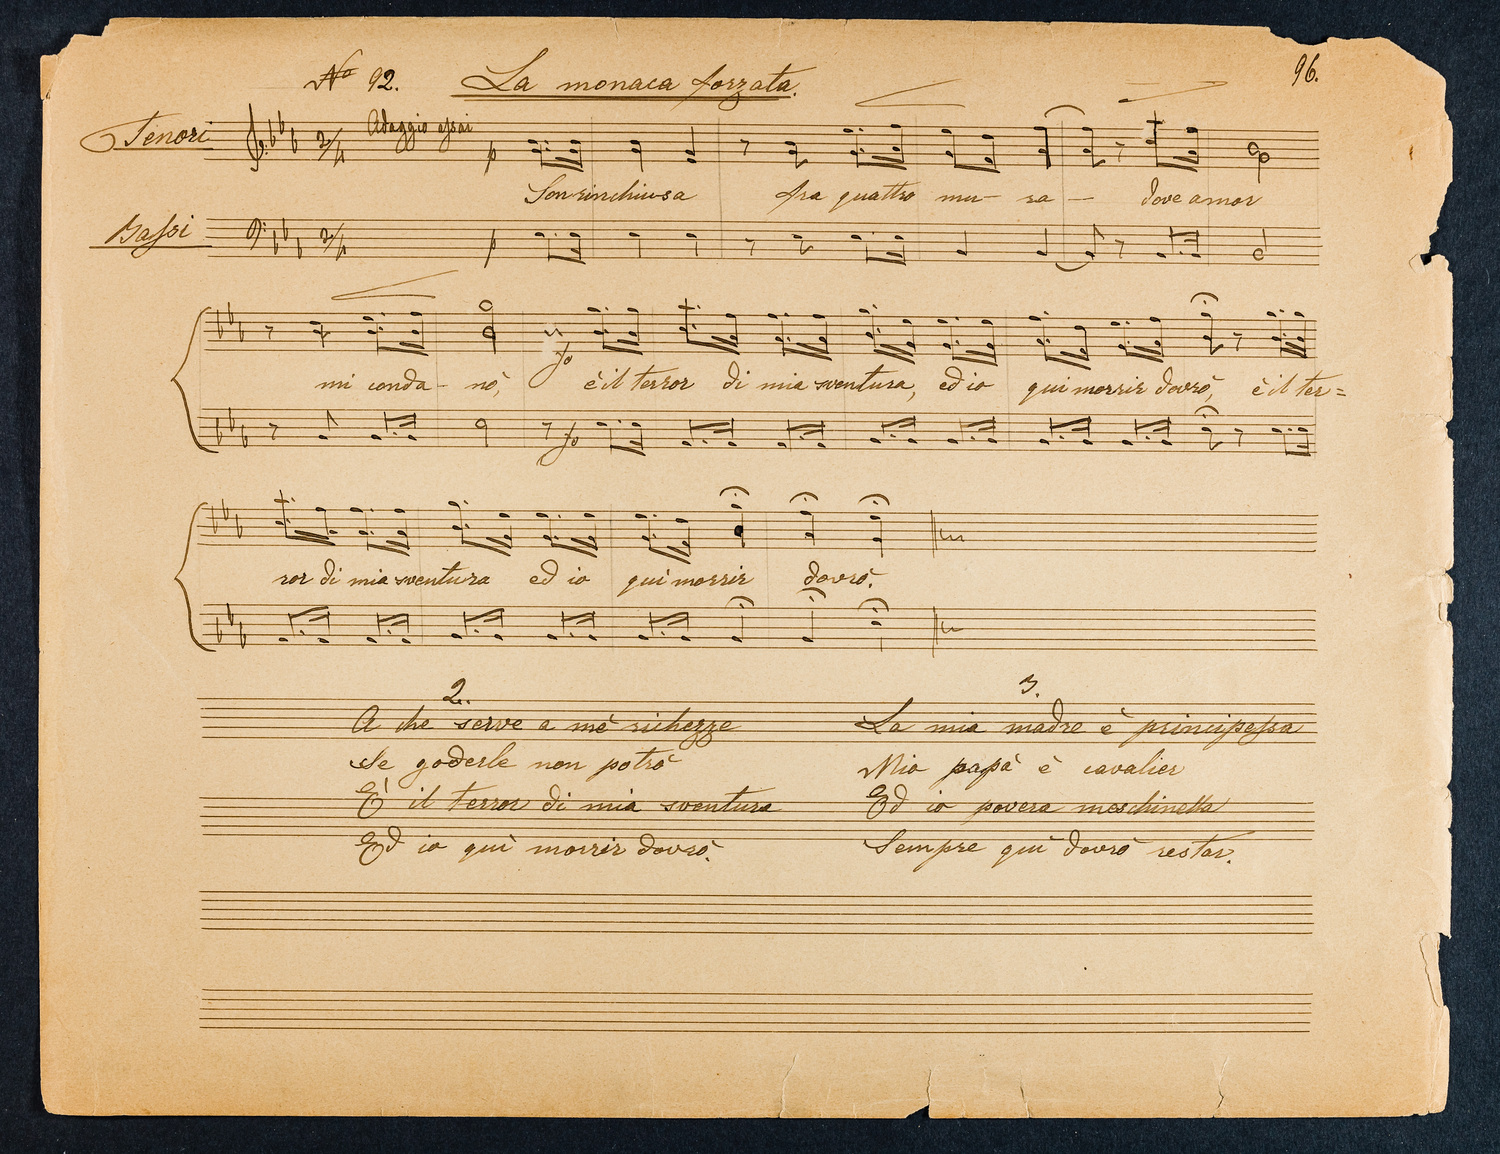 Nº 92. La monaca forzata. 96.
Tenori Adagio assai p
Son rinchiusa fra quattro mu- ra - dove amor
Bassi p
mi conda- nò, fo è il terror di mia sventura, ed io qui morrir dovrò, è il ter=
fo
ror di mia sventura ed io qui morrir dovrò.
2.
A che serve a mè richezze
Se goderle non potrò
E' il terror di mia sventura
Ed io quì morrir dovrò.
3.
La mia madre è principessa
Mio papà è cavalier
Ed io povera meschinella
Sempre quì dovrò restar.